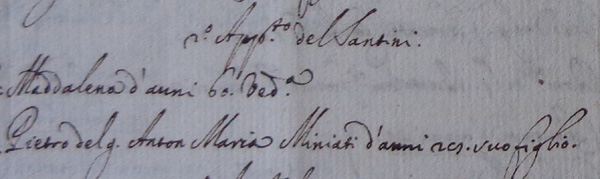 2.º App.to del Santini.
Maddalena d'anni 60. Ved.a
Pietro del q. Anton Maria Miniati d'anni 29. suo figlio.